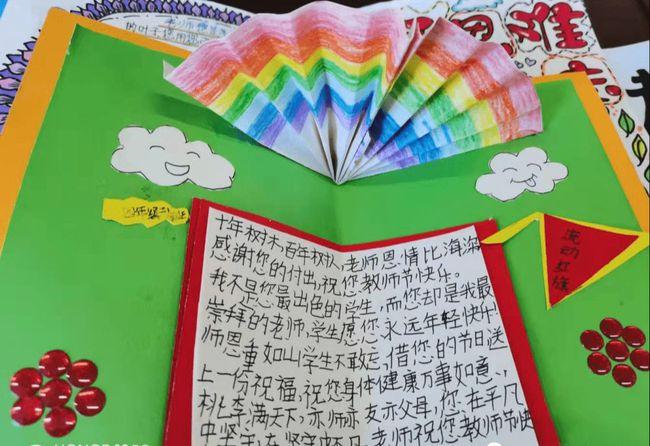 十年树木,百年树人,老师恩情比海深
感谢您的付出,祝您教师节快乐。
我不是您最出色的学生,而您却是我最
崇拜的老师,学生愿您永远年轻快乐!
师恩重如山学生不敢忘,借您的节日送
上一份祝福,祝您身体健康万事如意、
桃李满天下,亦师亦友亦父母,您在平凡
中坚
老师祝您教师节快
流动
红旗